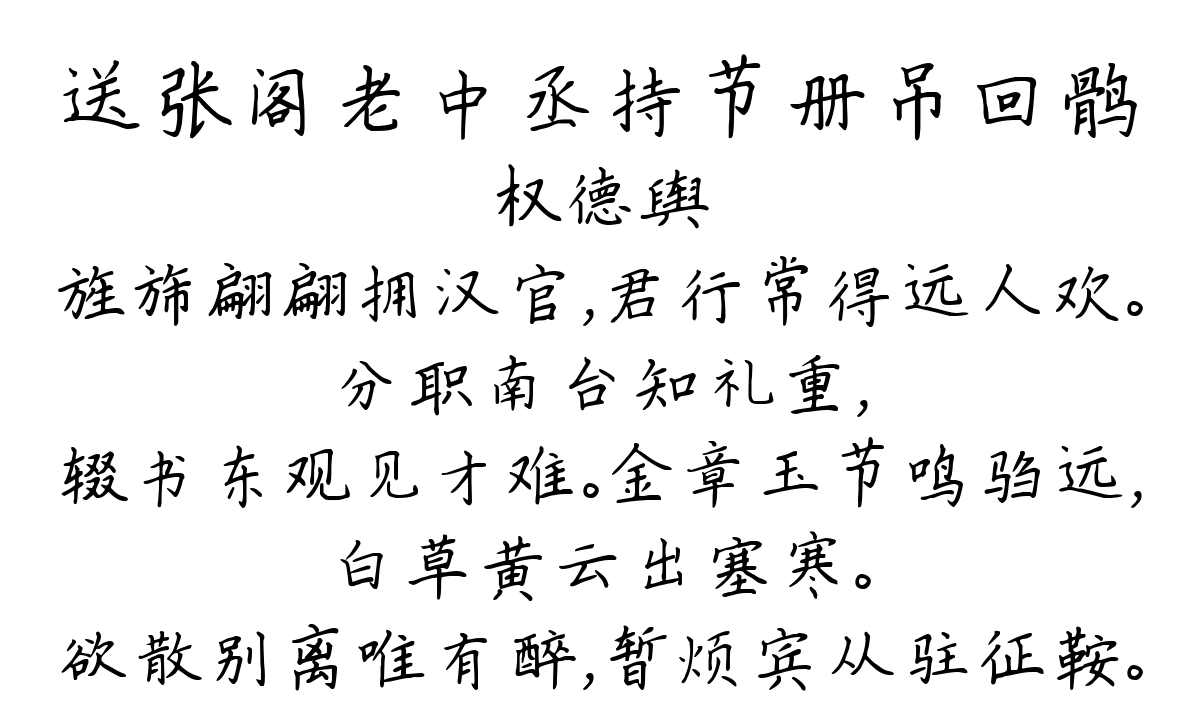 送张阁老中丞持节册吊回鹘
权德舆
旌旆翩翩拥汉官,君行常得远人欢。
分职南台知礼重,
辍书东观见才难。金章玉节鸣驺远,
白草黄云出塞寒。
欲散别离唯有醉,暂烦宾从驻征鞍。